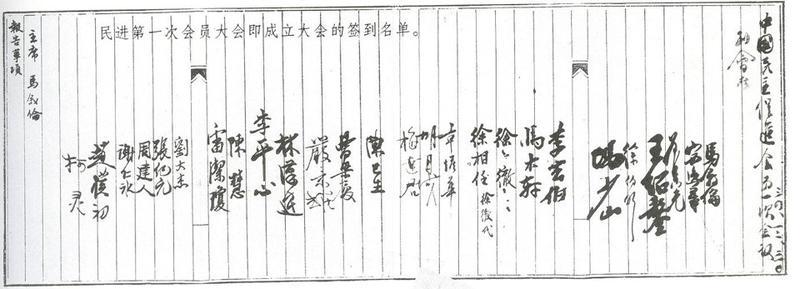 民进第一次会员大会即成立大会的签到名单。
中國民主促進会第一次会议
三四、一二、三〇
馬叙倫
王绍鏊
徐伯昕
馮少山
李玄伯
徐相任 徐徹代
胡月城
梅達君
陳巳生
曹梁厦
嚴景耀
林漢達
李平心
陳慧
雷潔瓊
劉大杰
張紀元
周建人
謝仁冰
趙樸初
柯灵
主席 馬叙倫
報告事項